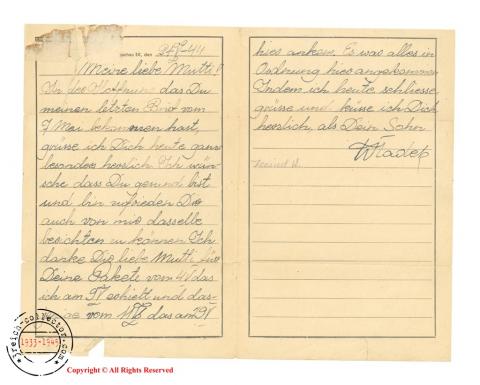 achau 3K, den 21.V-44
Meine liebe Mutti!
In der Hoffnung das Du
meinen letzten Brief vom
7 Mai bekommen hast,
grüsse ich Dich heute ganz
besonders herzlich. Ich wün-
sche dass Du gesund bist
und bin zufrieden Dir
auch von mir dasselbe
berichten zu können. Ich
danke Dir liebe Mutti für
Deine Pakete vom 4V das
ich am erhielt und das-
vom das am
hier ankam. Es war alles in
Ordnung hier angekommen
Indem ich heute schliesse,
grüsse und küsse ich Dich
herzlich, als Dein Sohn
Wladek
3reich-collector.com
1933-1945
Copyright © All Rights Reserved